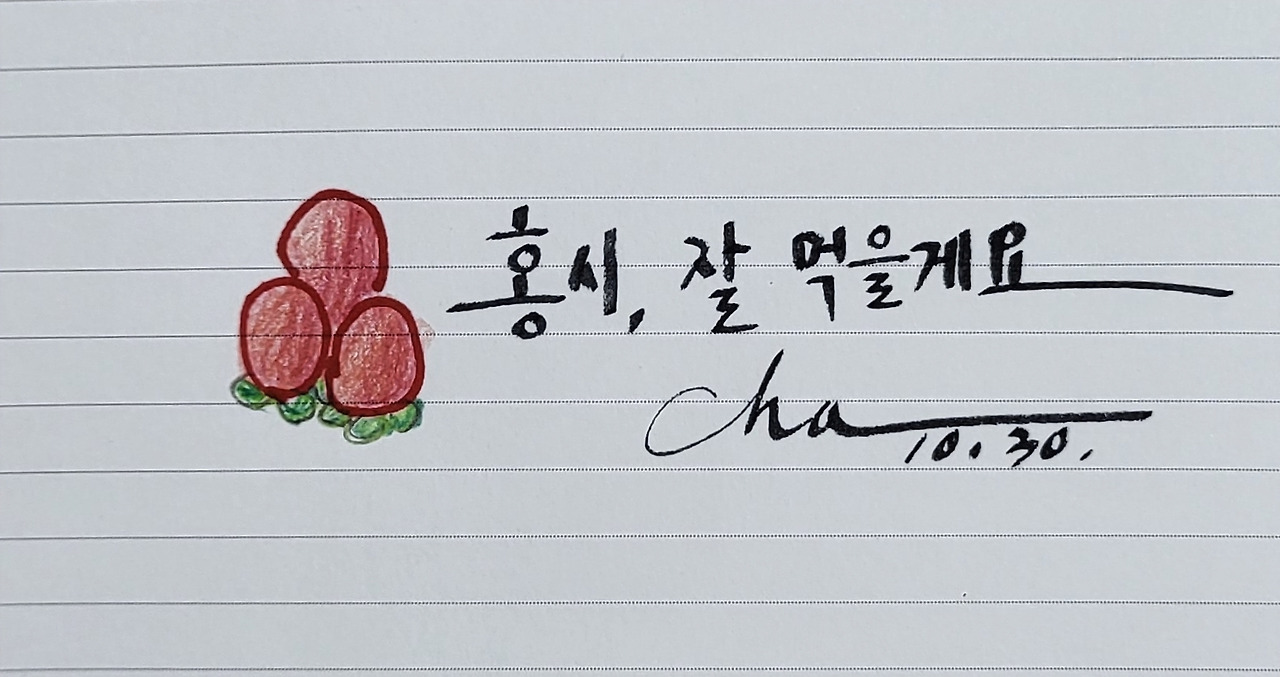 홍시, 잘 먹을게요
Cha
10.30.